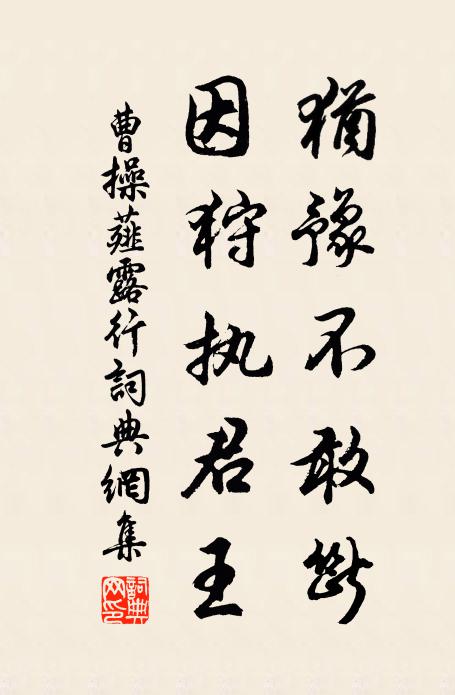 猶豫不敢斷
因狩执君王
曹操薤露行詞典網集
詞典网印